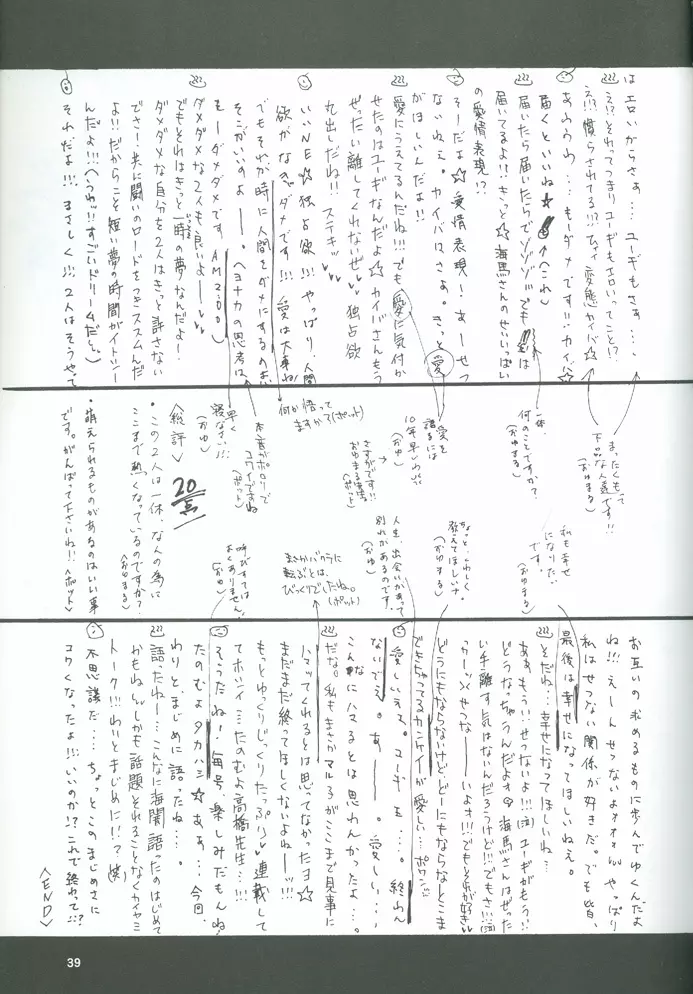 はエロいからさぁ…ユーギもさす…、
え!?それってつまりユーギもエロいってこと!?
え!!慣らされてる!!!?ひィィ変態カイバ☆
あううわ…もーダメです!!カイバ☆
届くといいね☆ (これ)
届いたら届いたらでゾゾゾ!!!でも はえは
届いてるよ!!きっと☆海馬さんのせいいっぱい
の愛情表現!?
そーだよ☆愛情表現!あーせつ
ないねえ。カイバはさぁ。きっと愛
がほしいんだよ!!
愛にうえてるんだね!!!でも愛に気付か
せたのはユーギなんだよ☆カイバさんもう
ぜったい離してくれなぜ 独占欲
丸出しだね!!ステキ
いいNE☆独占欲!!!やっぱり人間
欲がなきゃダメです!!!愛は大事ね
でもそれが時に人間をダメにするのよね
そこがいいのよー。ヘヨナカの思考は
もーダメダメです AM2:00)
ダメダメな2人も良いよー
でもそれはきっと一時の夢なんだよー!
ダメダメな自分を2人はきっと許さない
でさ!共に闘いのロードをつきススムんだ
よ!!だからこそ短い夢の時間がイトシー
んだよ!!!(うわッ!!すごいドリームだゼ)
それだよ!!!まさしく!!!2人はそうやって
まったくもって
下品な人達です!!
(おゆまる)
一体
何のことですか?
(おゆまる)
愛を
語るには
10年早いわ!!
(おゆ)
さすがです!!
おゆまる
(ポット)
何か悟って
ますかて?(ポット)
本音がポロリで
コワイですね
(ポット)
早く
寝なさい!!!
(おゆ)
<総評>
20点
・この2人は一休、なんの為に
ここまで熱くなっているのですか?
<おゆまる>
・萌えられるものがあるのはいい事
です。がんばって下さいね!!<ポット>
私も幸せ
になりたい
です。
(おゆまる)
ちょっと、くわしく
教えてほしいナ
(おゆまる)
人生、出会いがあって
別れがあるのです。
(おゆ)
まさかバクラに
転ぶとは、
びっくりでしたね。
(ポット)
呼びすては
よくありません!
(おゆ)
お互いの求めるものに歩んでゆくんだよ
ね!!!えーんせつないよォォォ やっぱり
私はせつない関係が好きだ。でも皆、
最後は幸せになってほしいねえ。
そだね…幸せになってほしいね…
ああもう!!せつないよ!!(泣)ユーギがもう!!
どうなっちゃうんだよォ 海馬さんはぜった
い手離す気はないんだろうけど!!!でもさ!!!(泣)
っかーッ せつなーーいよォ!!!でもそれが好き
どうにもならないけどどーにもならなくとこま
できちゃってるカンケイが愛しい…ポワン
愛しいえろ。ユーギ も…。終わん
ないでえ。あー。愛しい…、
こんなにハマるとは思わんかったよ…。
だな。私もまさかマルろがここまで見事に
ハマってくれるとは思ってなかったヨ☆
まだまだ終ってほしくないよねーッ!!!
もっとゆっくりじっくりたっぷり 連載して
てホシイ…たのむよ高橋先生…!!!
そうだね!毎号、楽しみだもんね
たのむよタカハシ☆あぁ…今回、
わりと、まじめに語ったね…。
語ったねー…こんなに海闇語ったのはじめて
かもね しかも話題それることなくカイヤミ
トーク!!!わいとまじめに!!?(笑)
不思議だ…ちょっとこのまじめさに
コワくなったよ!!!いいのか!?これで終わって…!?
<END>
39